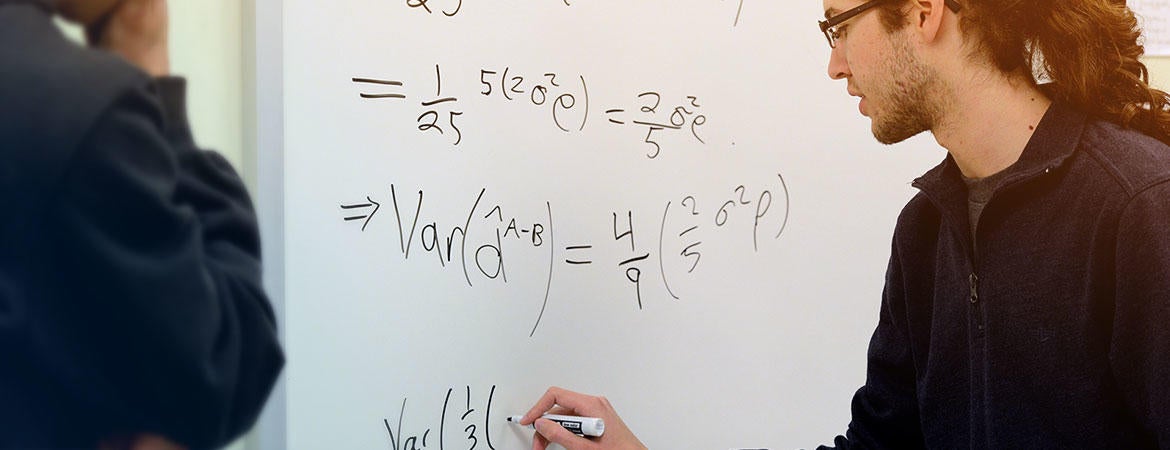 25
= 1/25 5(2σ²ρ) = 2/5 σ²ρ.
⇒ Var(d̂^(A-B)) = 4/9 (2/5 σ²ρ)
Var(1/3(